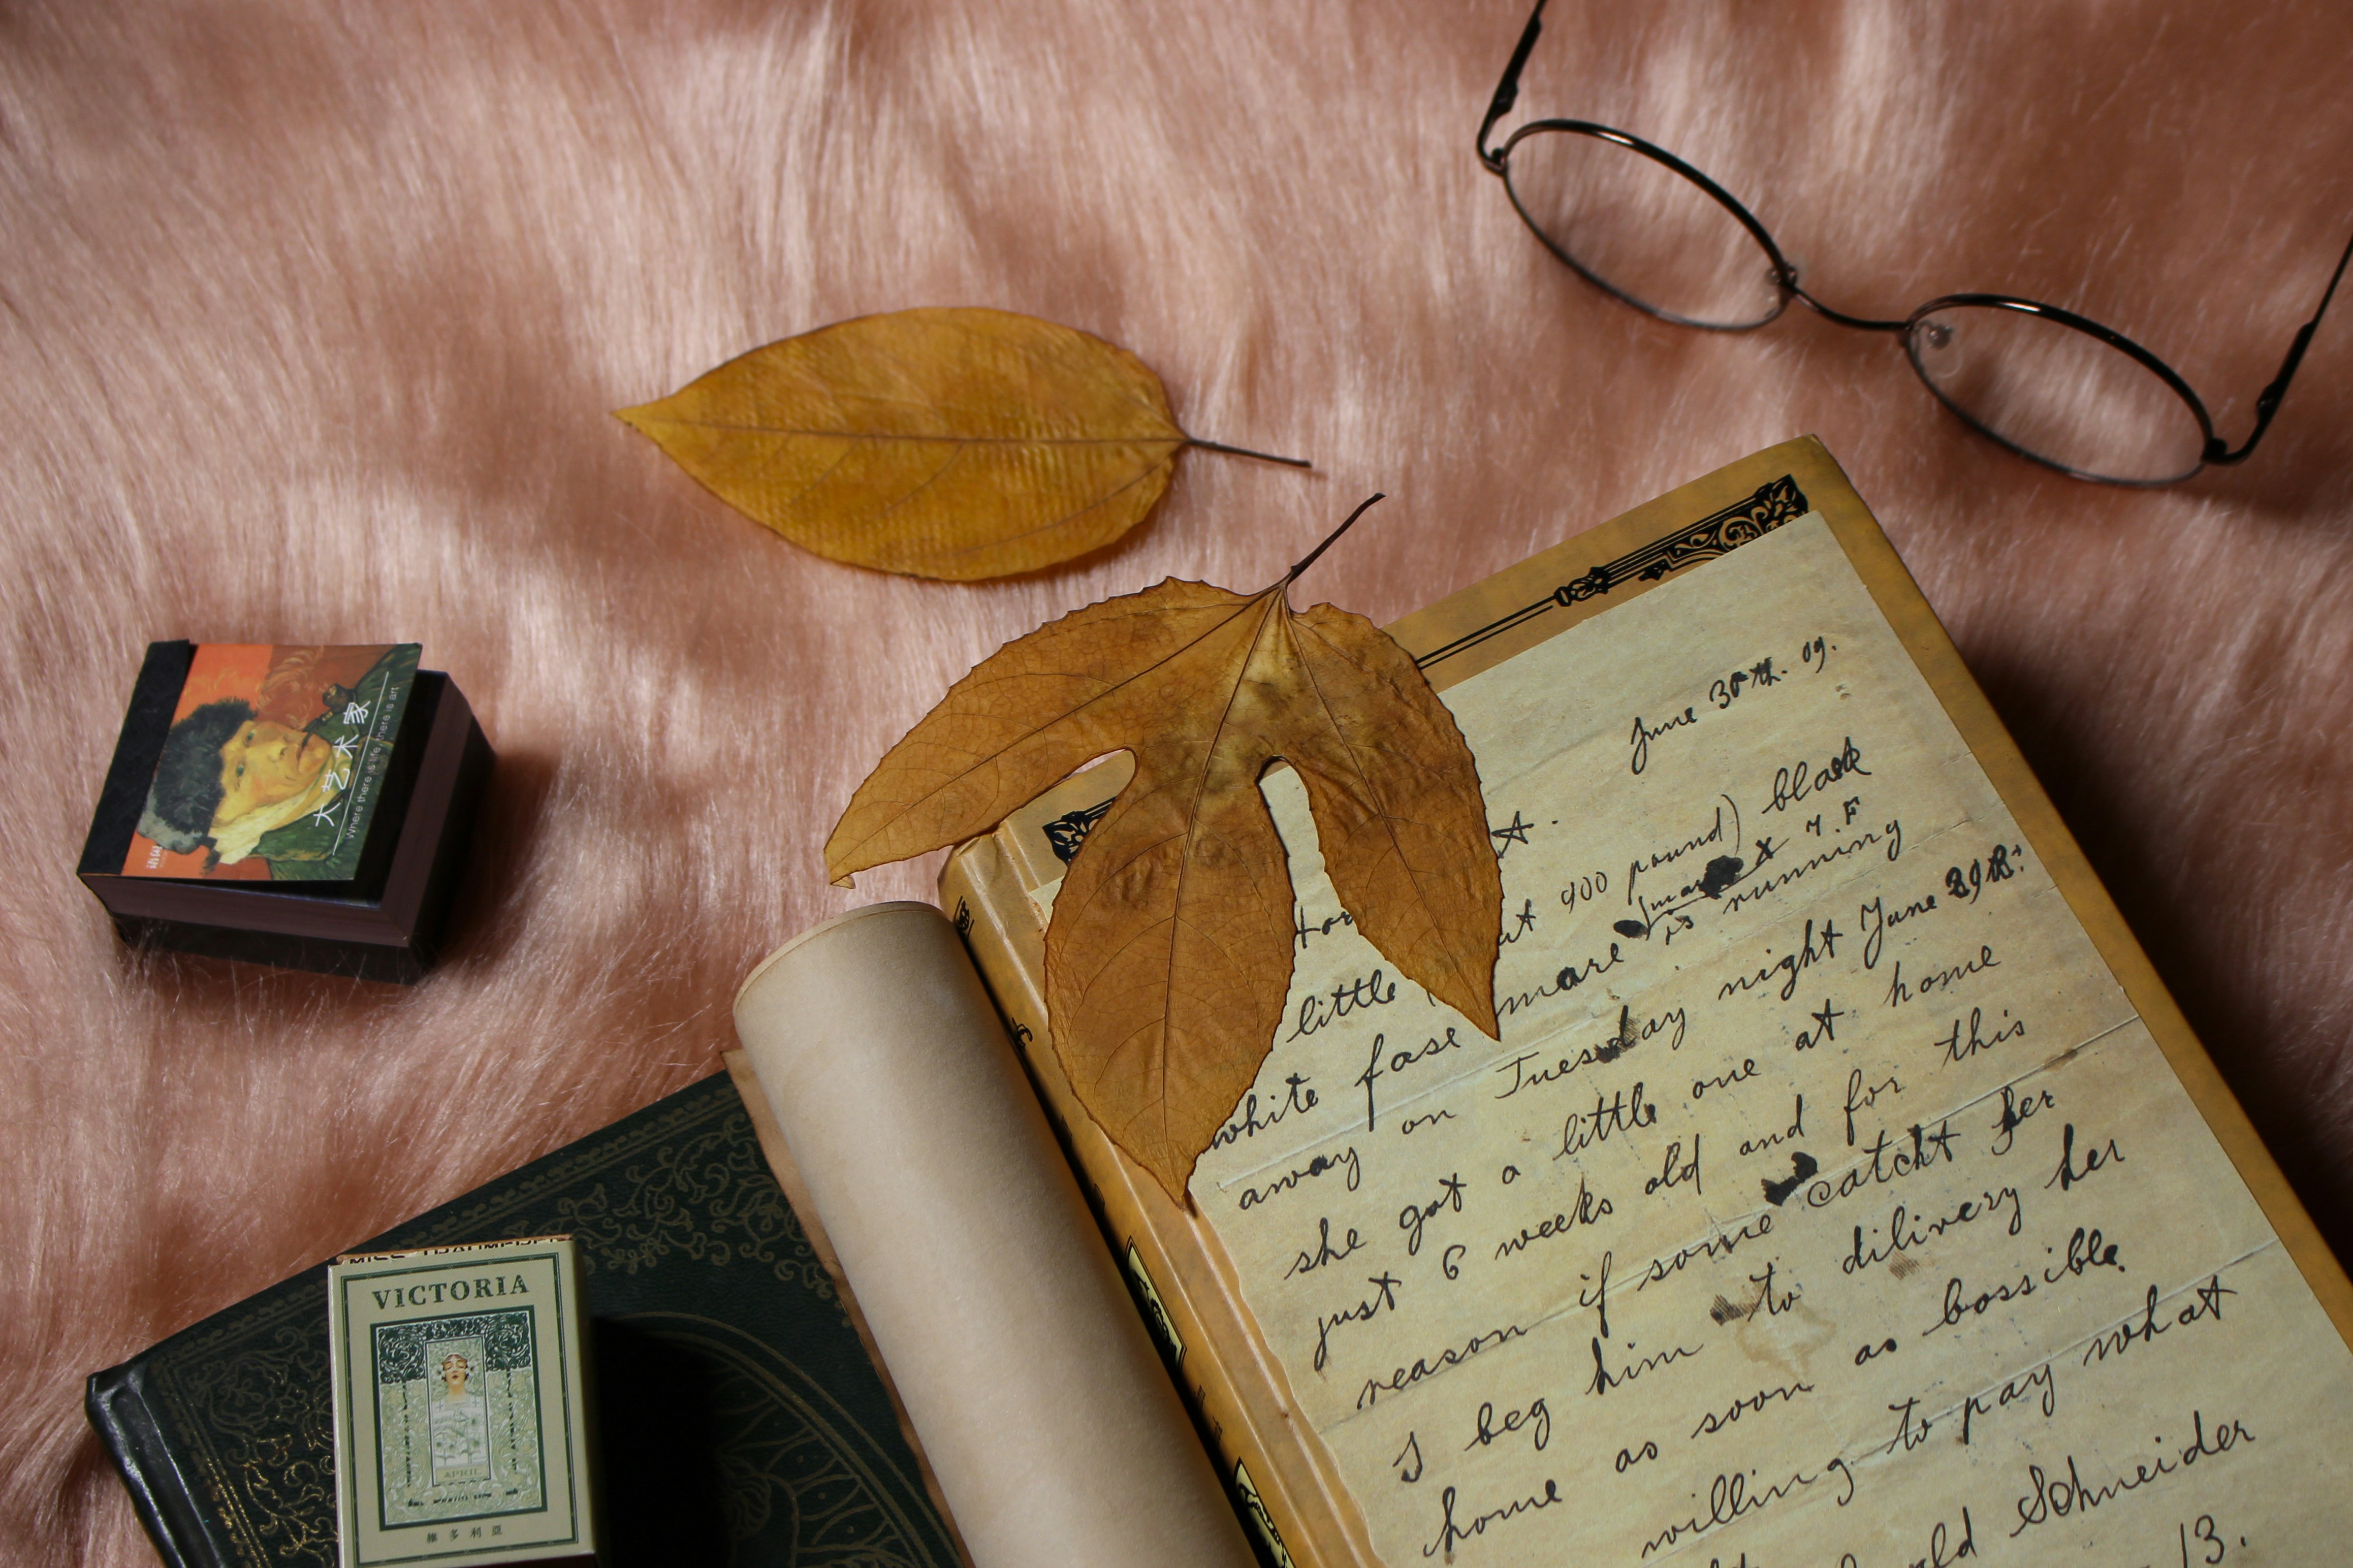 June 30th. 09.
little
900 pound) black
white fase mare is running
away on Tuesday night June 29th.
she got a little one at home
just 6 weeks old and for this
reason if some catcht her
I beg him to dilivery her
home as soon as bossible.
willing to pay what
Schneider
13.
大艺术家
Where there is life, there is art
VICTORIA
APRIL
維多利亞